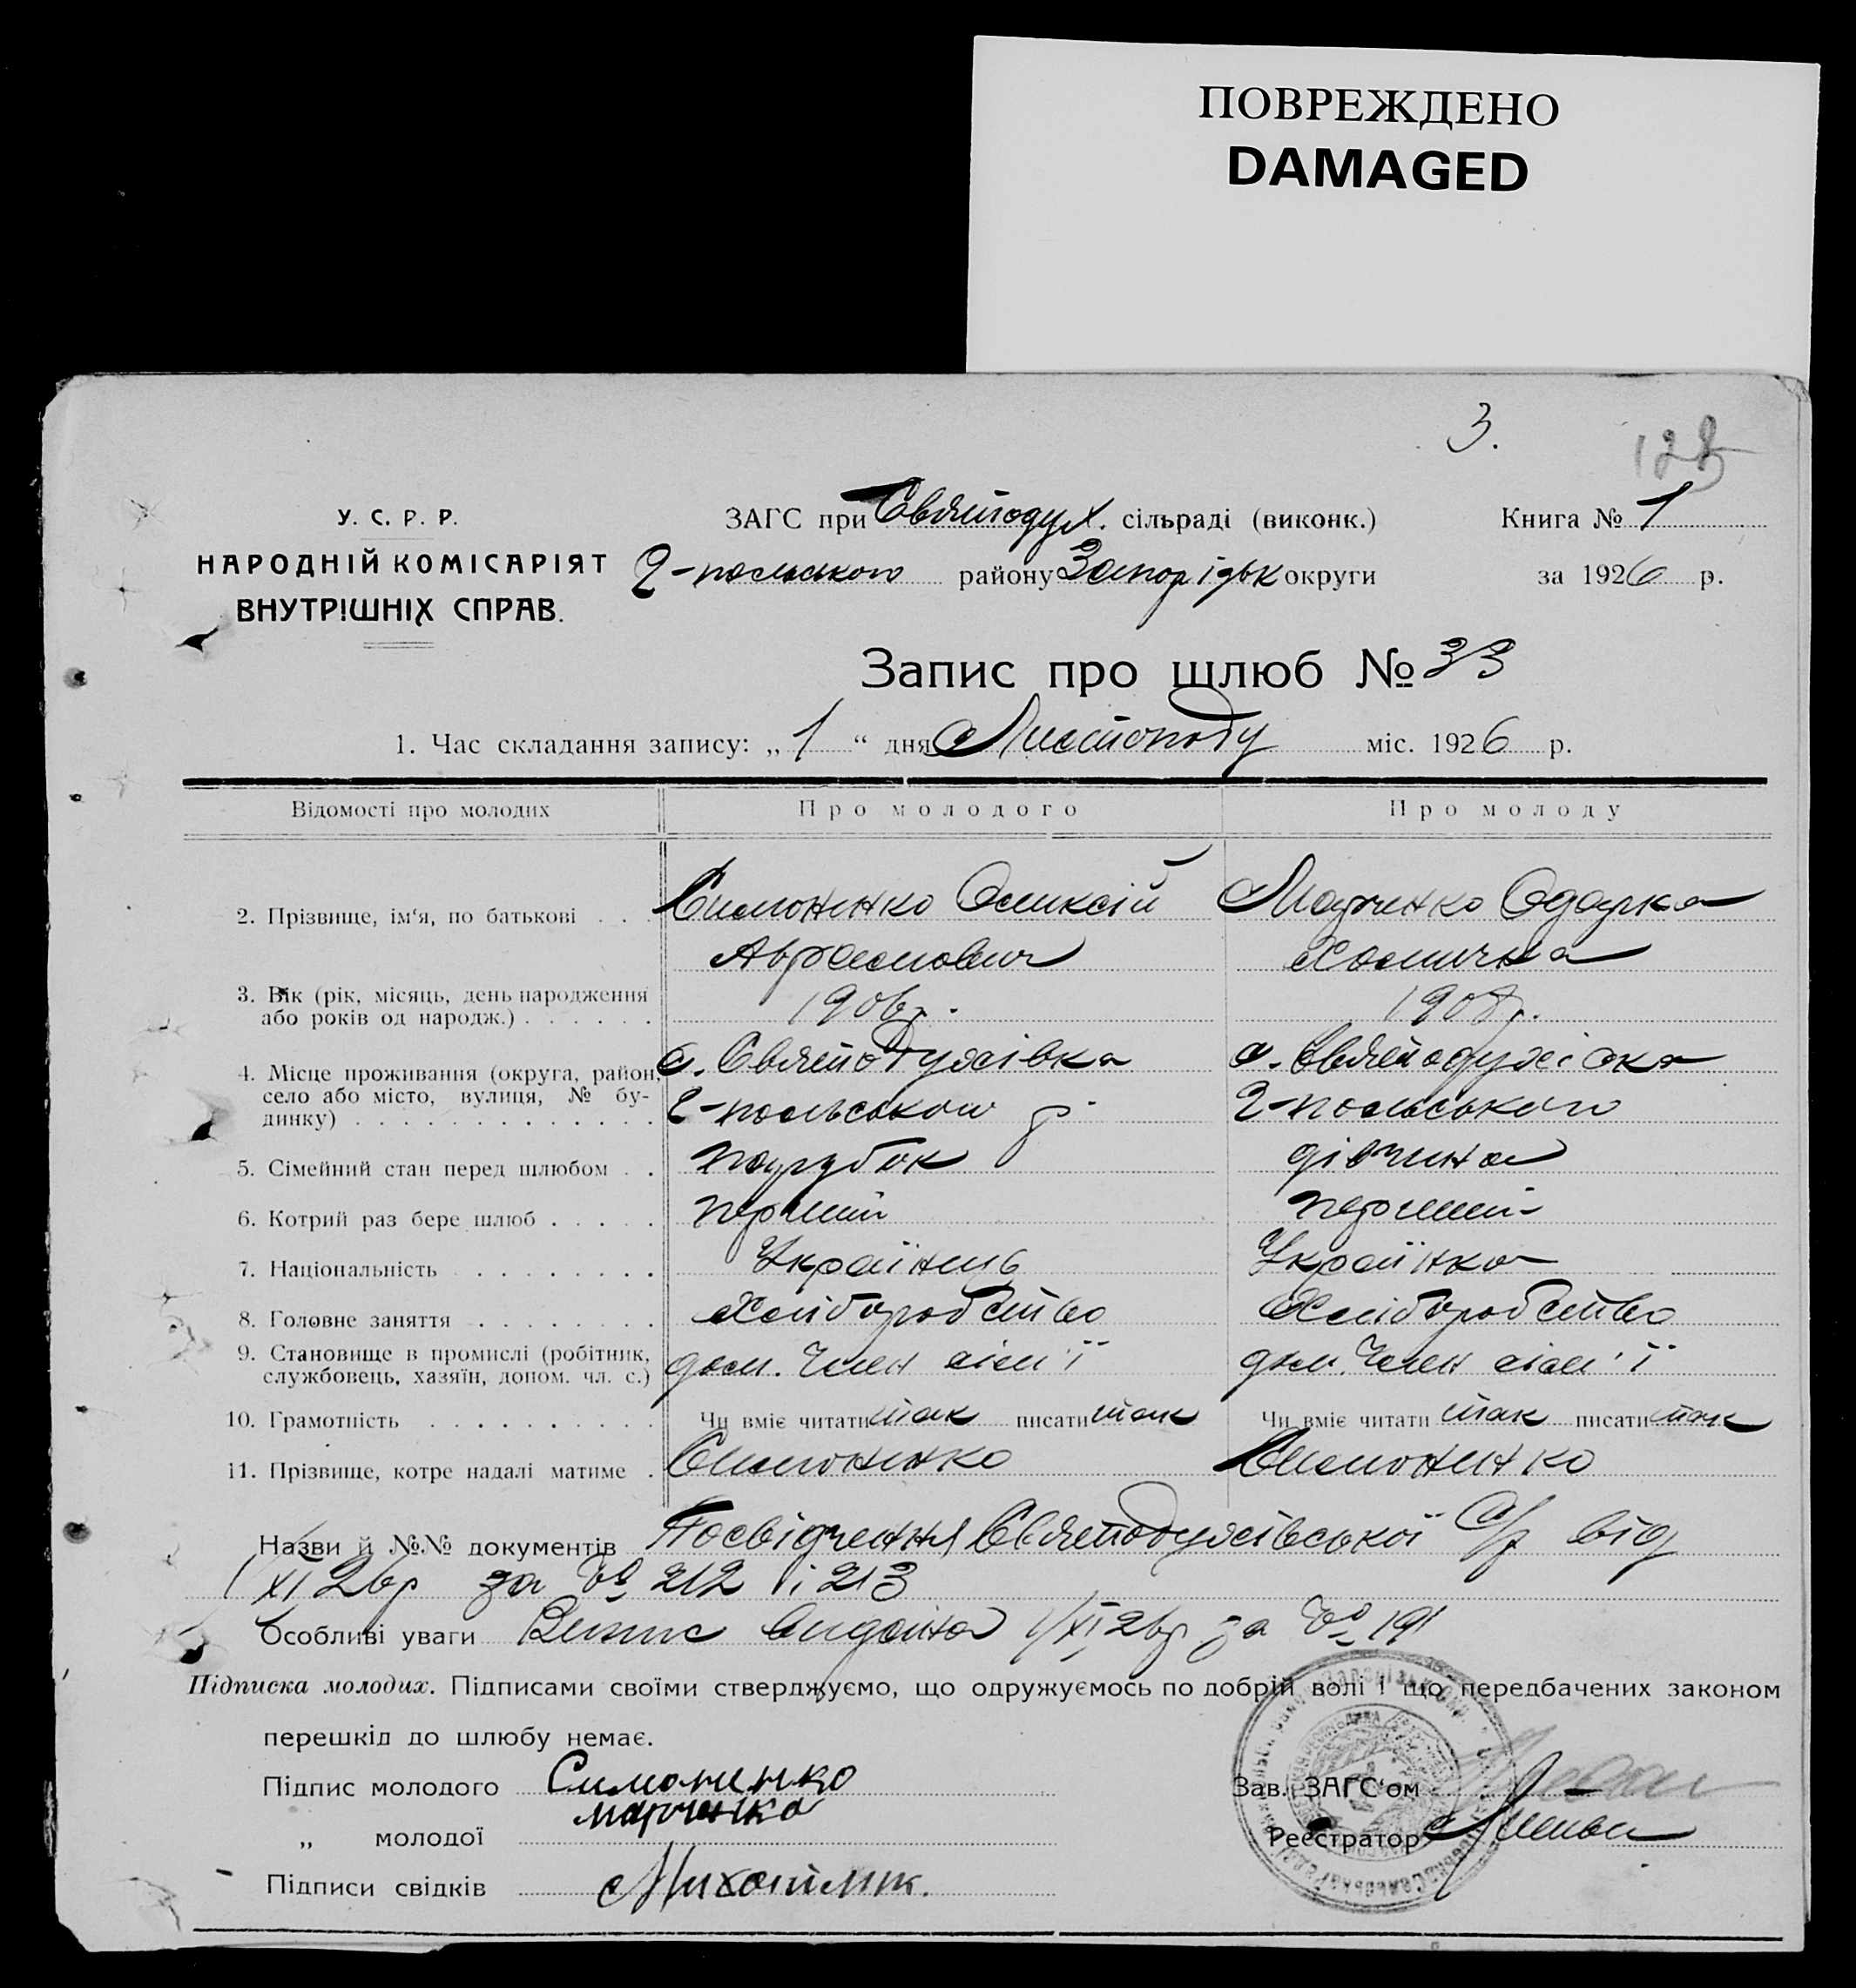 ПОВРЕЖДЕНО
DAMAGED
3.
У. С. Р. Р.
НАРОДНІЙ КОМІСАРІЯТ
ВНУТРІШНІХ СПРАВ.
ЗАГС при Святодух. сільраді (виконк.)
Г-польського району Запорідьк округи
Книга № 1
за 1926 р.
Запис про шлюб № 33
1. Час складання запису: „ 1 “ дня Листоподу міс. 1926 р.
Відомості про молодих Про молодого Про молоду
2. Прізвище, ім‘я, по батькові . . . Симоненко Олексій Марченко Одарка
Аврамович Хомична
3. Вік (рік, місяць, день народження
або років од народж.) . . . . . . 1906р. 1908р.
4. Місце проживання (округа, район, с. Святодухівка с. Святодухівка
село або місто, вулиця, № бу- Г-польського р. Г-польського
динку) . . . . . . . . . . . . .
5. Сімейний стан перед шлюбом . . парубок дівчина
6. Котрий раз бере шлюб . . . . . перший перший
7. Національність . . . . . . . . . Українець Українка
8. Головне заняття . . . . . . . . Хліборобство Хліборобство
9. Становище в промислі (робітник, дом. Член сім'ї дом. Член сім'ї
службовець, хазяїн, допом. чл. с.)
10. Грамотність . . . . . . . . . . Чи вміє читати так писати так Чи вміє читати так писати так
11. Прізвище, котре надалі матиме . Симоненко Симоненко
Назви й №№ документів Посвідчення Святодухівської С/р від
1/XI 26р за № 212 і 213
Особливі уваги Випис видана 1/XI 26р за № 191
Підписка молодих. Підписами своїми стверджуємо, що одружуємось по добрій волі і що передбачених законом
перешкід до шлюбу немає.
Підпис молодого Симоненко
марченко
„ молодої
Зав. ЗАГС‘ом
Реєстратор
Підписи свідків Михайлик.